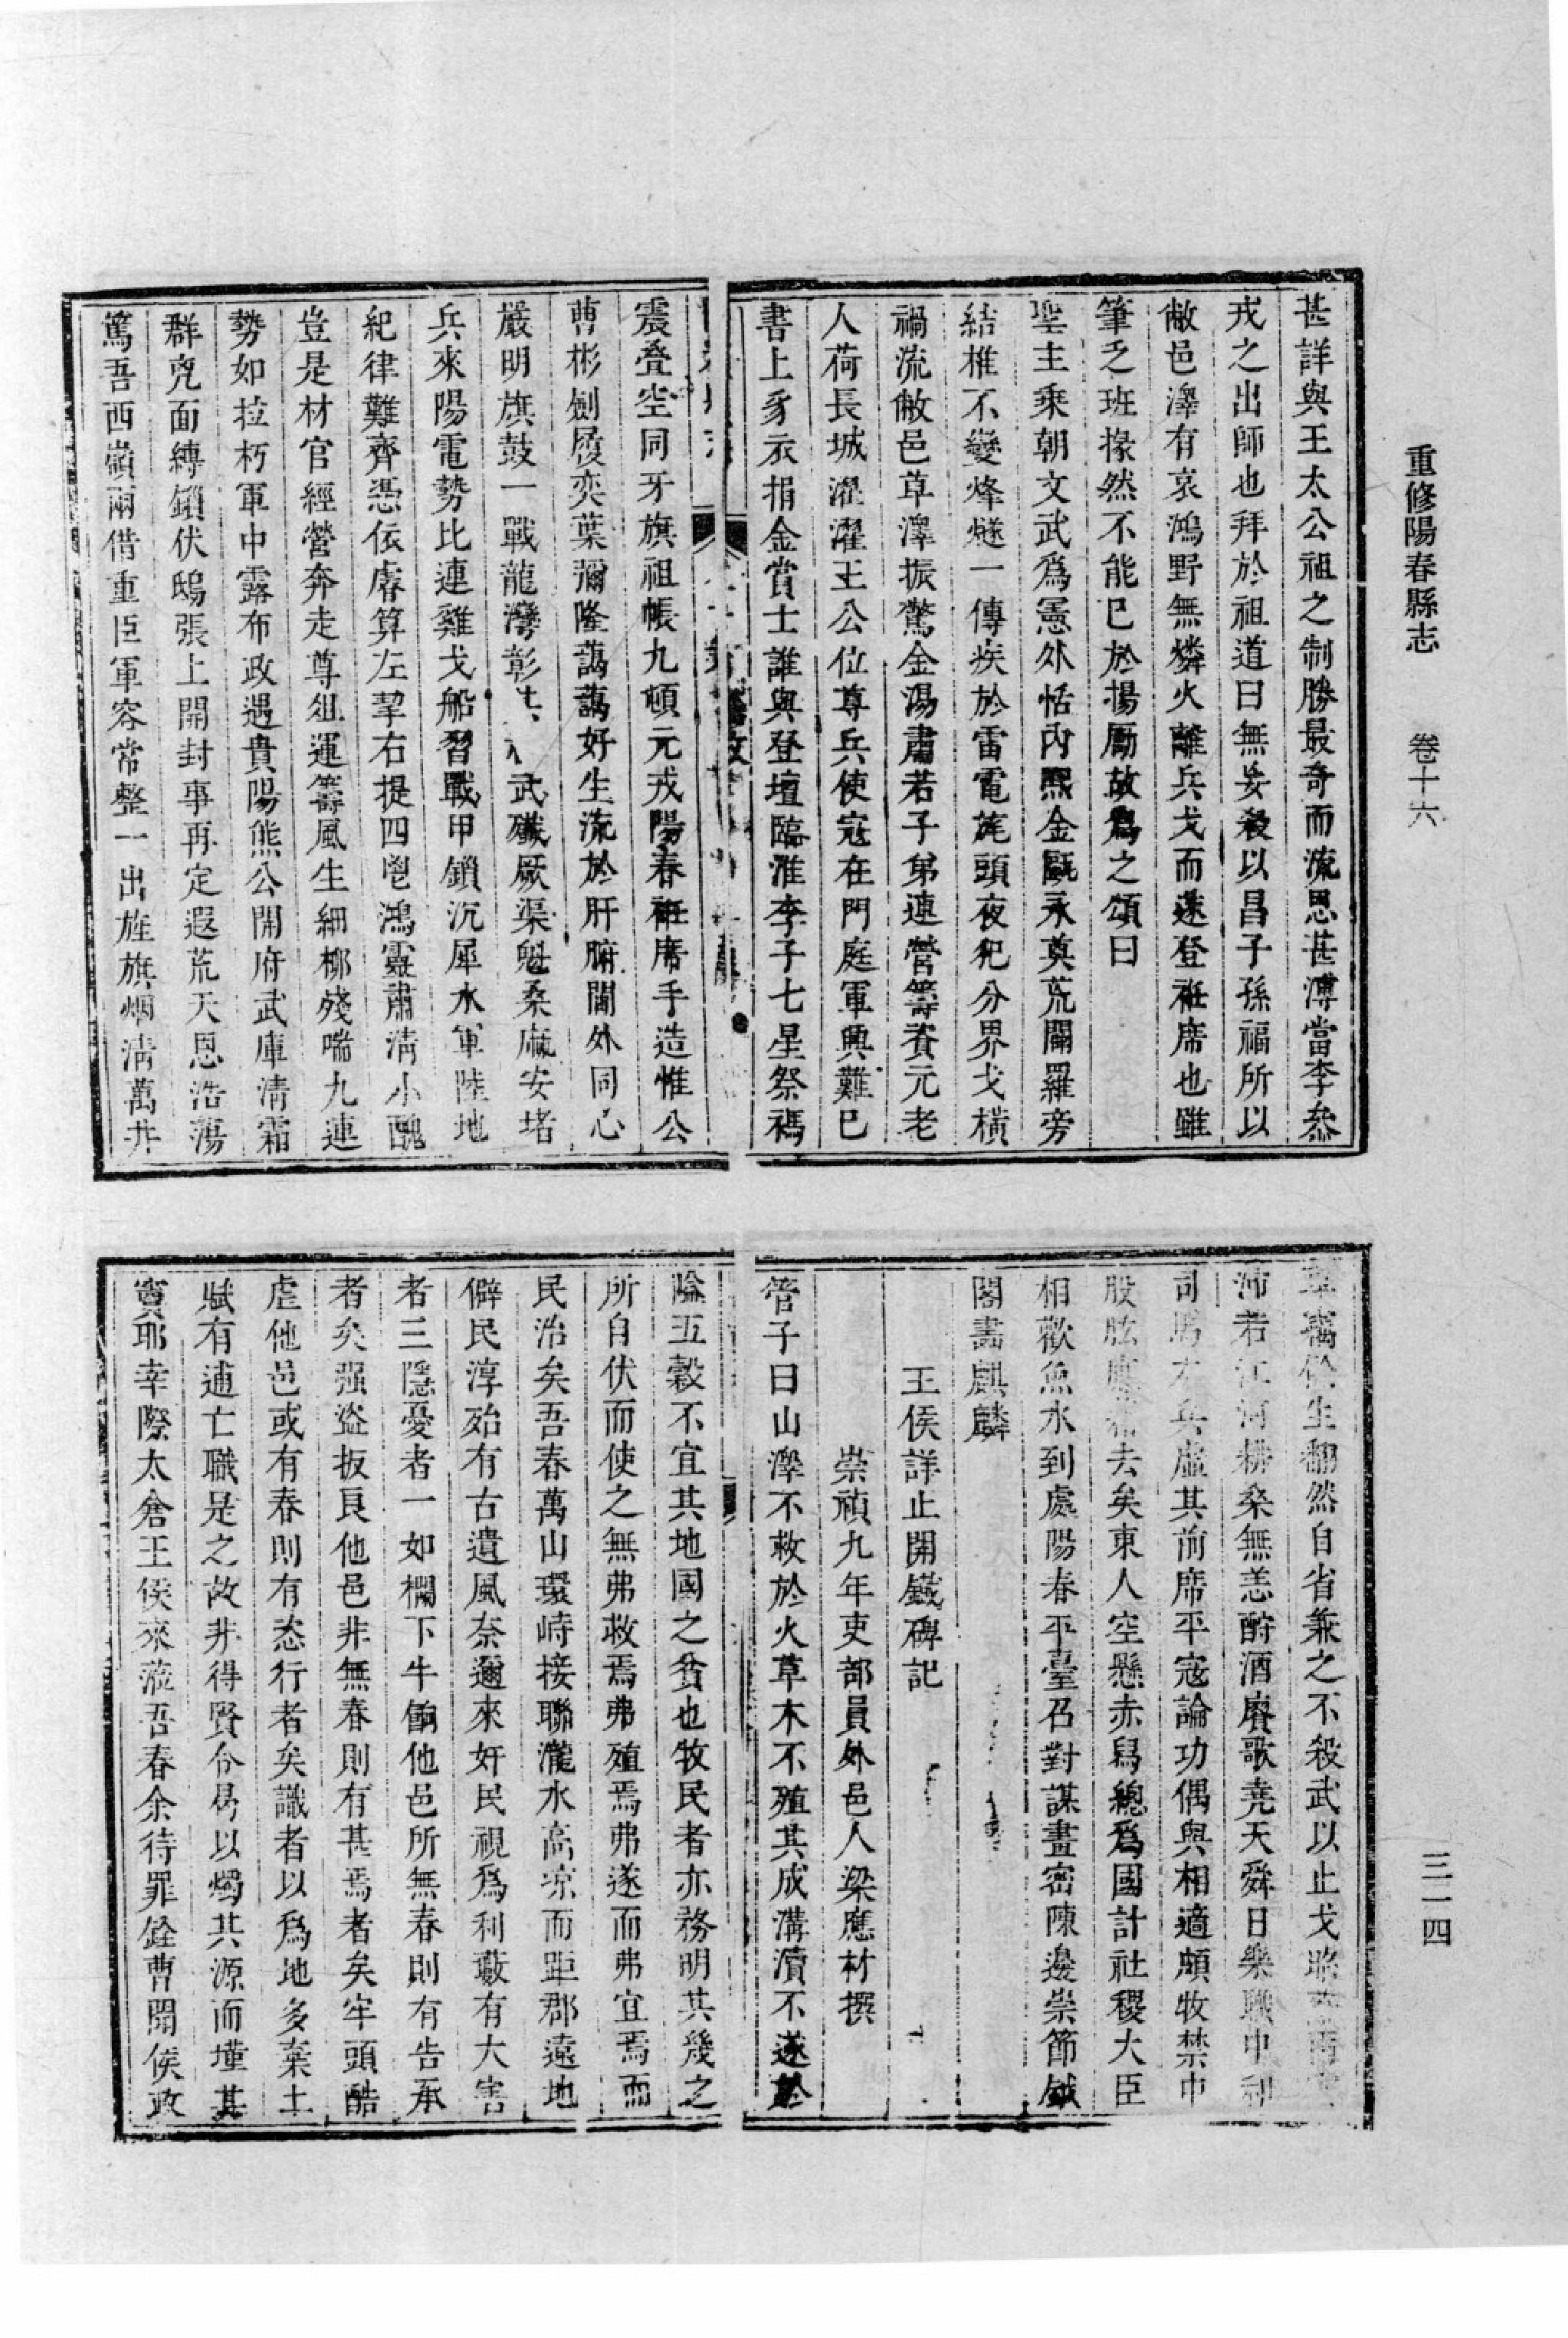 重修陽春縣志　卷十六
三一四
甚詳與王太公祖之制勝最奇而流恩甚溥當李叅
戎之出師也拜於祖道曰無妄殺以昌子孫福所以
敝邑澤有哀鴻野無燐火離兵戈而遂登袵席也雖
筆乏班掾然不能已於揚厲故爲之頌曰
聖主乘朝文武爲憲外恬內熙金甌永奠荒闢羅旁
結椎不變烽燧一傳疾於雷電蓗頭夜犯分界戈橫
禍流敝邑草澤振驚金湯肅若子弟連營籌資元老
人荷長城濯濯王公位尊兵使寇在門庭軍興難已
書上豸衣捐金賞士誰與登壇臨淮李子七星祭禡
震叠空同牙旗祖帳九頓元戎陽春袵席手造惟公
曹彬劍履奕葉彌隆藹藹好生流於肝腑閫外同心
嚴明旗鼓一戰龍灣彰武殲厥渠魁桑麻安堵
兵來陽電勢比連雞戈船習戰甲鎖沉犀水軍陸地
紀律難齊憑依睿算左挈右提四鬯鴻靈肅淸小醜
豈是材官經營奔走尊俎運籌風生細柳殘喘九連
勢如拉朽軍中露布政遇貴陽熊公開府武庫淸霜
群兇面縛鎖伏鴟張上開封事再定遐荒天恩浩蕩
篤吾西嶺兩借重臣軍容常整一出旌旗烟淸萬井
生翻然自省兼之不殺武以止戈
沛若江河耕桑無恙酹酒賡歌堯天舜日樂職中和
司馬本兵虛其前席平寇論功偶與相適頗牧禁中
股肱去矣東人空懸赤舄總爲國計社稷大臣
相歡魚水到處陽春平臺召對謀畫密陳邊崇節鉞
閣畵麒麟
王侯詳止開鐵碑記
崇禎九年吏部員外邑人梁應材撰
管子曰山澤不救於火草木不殖其成溝瀆不遂於
隘五穀不宜其地國之貧也牧民者亦務明其幾之
所自伏而使之無弗救焉弗殖焉弗遂而弗宜焉而
民治矣吾春萬山環峙接聯瀧水高凉而距郡遠地
僻民淳殆有古遺風奈邇來奸民視爲利藪有大害
者三隱憂者一如欄下牛餉他邑所無春則有告承
者矣强盜扳良他邑非無春則有甚焉者矣牢頭酷
虐他邑或有春則有恣行者矣識者以爲地多棄土
賦有逋亡職是之故非得賢令易以燭其源而墐其
竇耶幸際太倉王侯來蒞吾春余待罪銓曹聞侯政